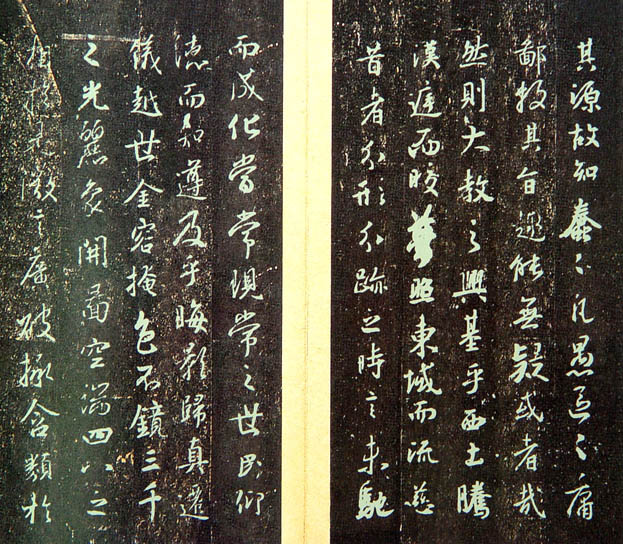 其源故知蠢々凡愚區々庸
鄙投其旨趣能無疑或者哉
然則大教之興基乎西土騰
漢庭而皎夢照東域而流慈
昔者分形分跡之時言未馳
而成化當常現常之世民仰
德而知遵及乎晦影歸真遷
儀越世金容掩色不鏡三千
之光麗象開圖空端四八之
相於是微言廣被拯含類於